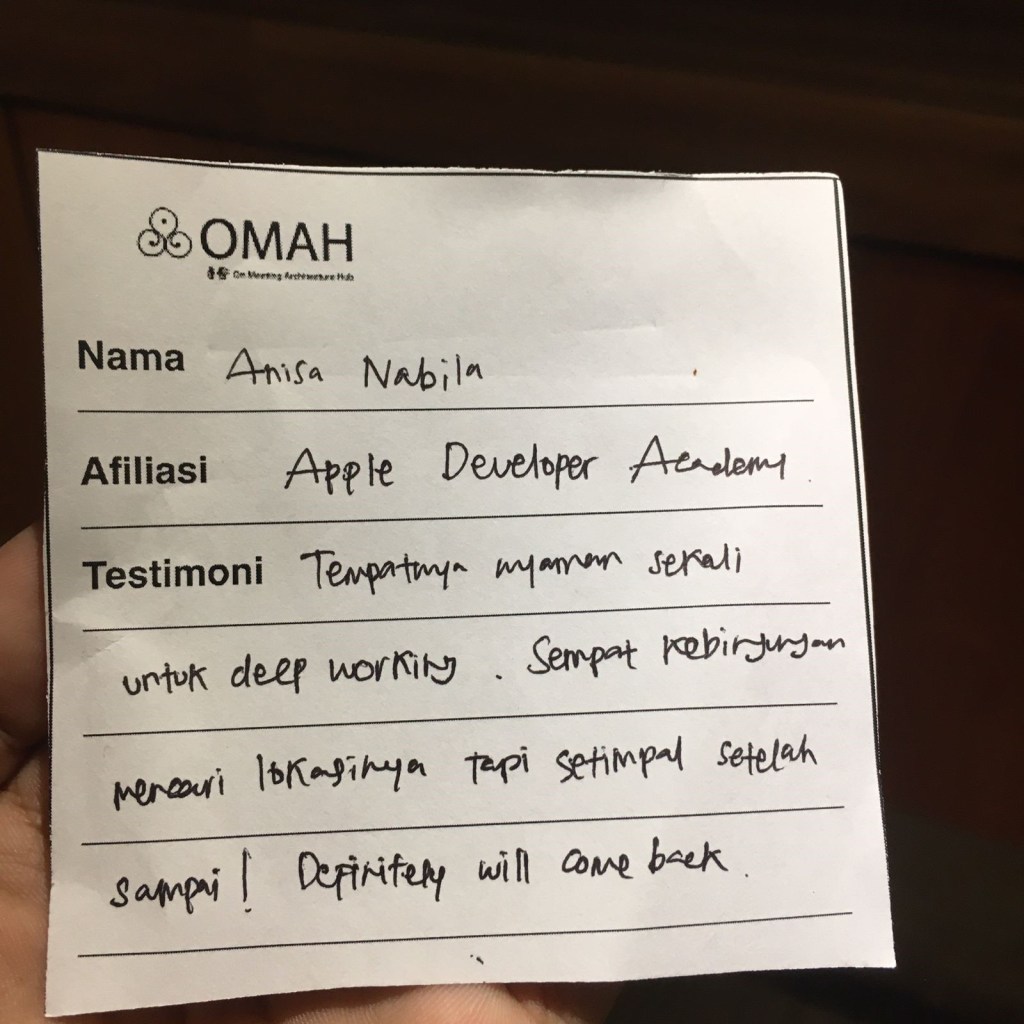 OMAH
On Meeting Architecture Hub
Nama Anisa Nabila
Afiliasi Apple Developer Academy
Testimoni Tempatnya nyaman sekali
untuk deep working. Sempat kebingungan
mencari lokasinya tapi setimpal setelah
sampai! Definitely will come back.